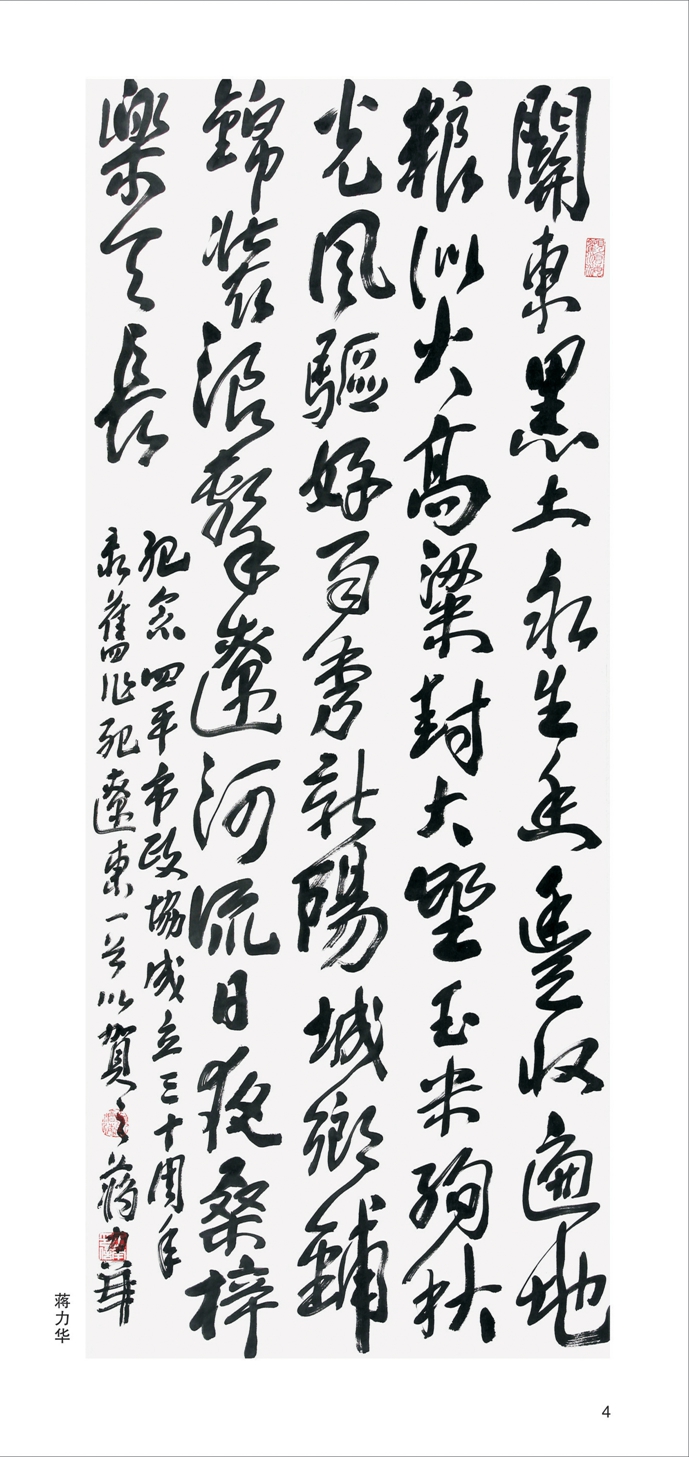 關東黑土永生香豐收遍地
糧似火高粱封大壑玉米絢秋
光風驅好雨秀新陽城鄉鋪
錦裝浪擊遼河流日夜桑梓
樂天長
紀念四平市政協成立三十周年
录舊作紀遼東一首以賀之蔣力華
蒋力华
4